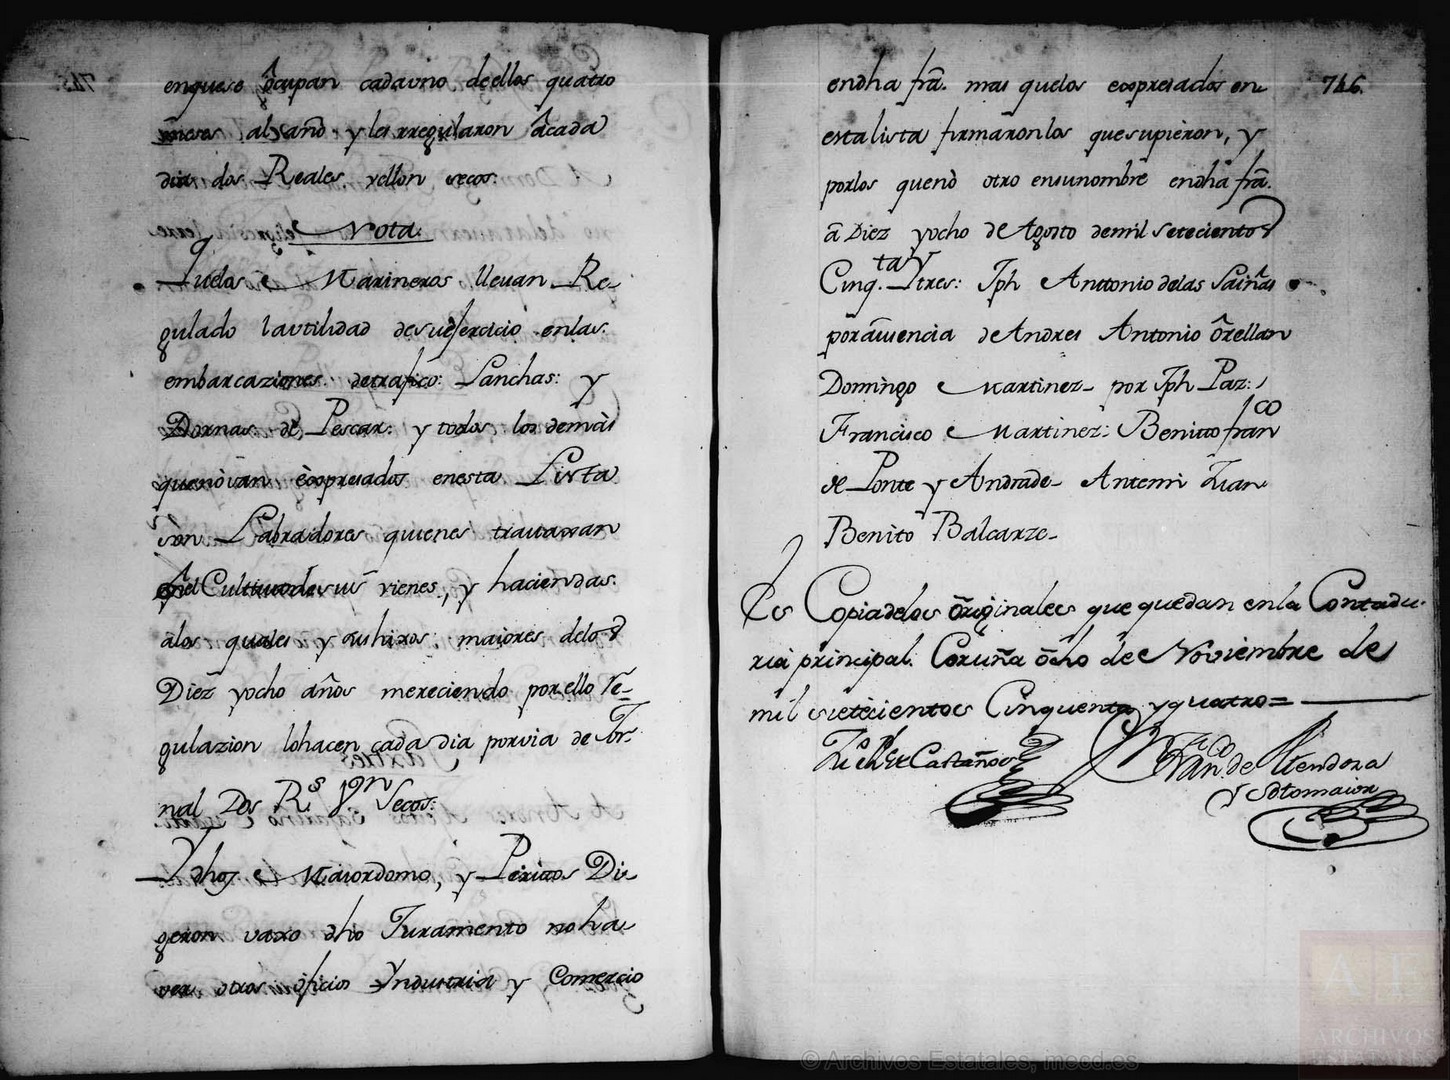 enquese ôcupan cadauno deellos quatro
meses alaño y les rregularon âcada
dia dos Reales vellon secos.
Nota.
Quelos Marineros lleuan Re-
gulado lautilidad desuejercicio enlas
embarcaziones detrafico: Lanchas: y
Dornas de Pescar: y todos los demàs
quenòvan èxpresados enesta Lista
son Labradores quienes trauaxan
enel Cultiuo de sus vienes, y haciendas:
alos quales y sus hixos maiores delos
Diez yocho años mereciendo porello re-
gulazion lohacen cada dia porvia de Jor-
nal Dos Rs Von Secos:
Y dhos Maiordomo, y Peritos Di-
geron vaxo dho Juramento no ha-
ver otros òficios Yndustria y Comercio
746.
endha fra. mas quelos expresados en
esta lista firmaronlos quesupieron, y
porlos quenò otro ensunombre endha fra.
a Diez yocho de Agosto demil Setecientos
Cinq.ta Y tres: Jph Anttonio delas Sariñas
porausencia de Andres Antonio Orellan
Domingo Martinez- por Jph Paz:
Francisco Martinez: Benitto franco
de Ponte y Andrade- Antemi Juan
Benito Balcarze-
Es Copia delos originales que quedan enla Contadu-
ria principal. Coruña ôcho de Noviembre de
mil settecientos Cinquenta, y quatro=
Castaños
Franco de Mendoza
y Sotomaior
© Archivos Estatales, mecd.es
AE
ARCHIVOS
ESTATALES